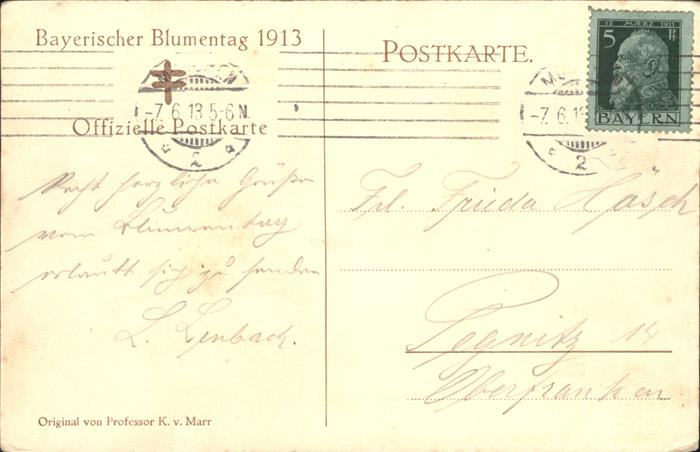 Bayerischer Blumentag 1913
Offizielle Postkarte
POSTKARTE.
12 MAERZ 1911
5 Pf
BAYERN
-7.6.13.5-6N.
2
-7.6.1
2
Recht herzliche Grüße
vom Blumentag
erlaubt sich zu senden
L. Lenbach.
Frl. Frieda Hösch
Pegnitz 14
Oberfranken
Original von Professor K. v. Marr